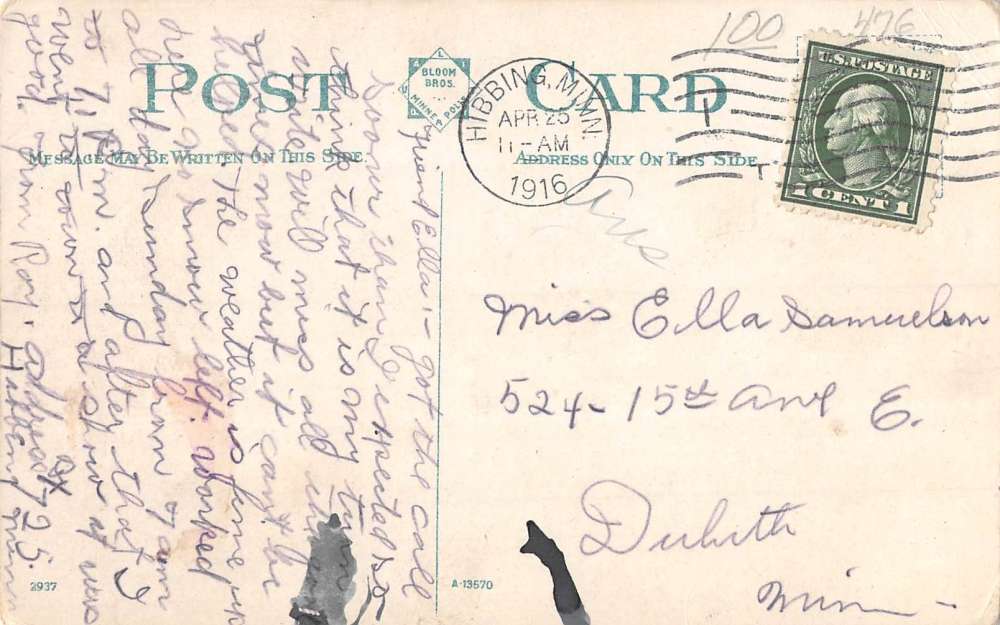 POST CARD
BLOOM BROS.
MINNEAPOLIS
MESSAGE MAY BE WRITTEN ON THIS SIDE
ADDRESS ONLY ON THIS SIDE
HIBBING, MINN.
APR 25
11-AM
1916
U.S. POSTAGE
1 CENT 1
100
476
Ans
Friend Ella:- got the call
sooner than I expected so
think that it is my turn
write will miss all the
now but it cant be
helped. The weather is fine up
here no snow left. worked
all day Sunday from 7 am
to 7 P.m. and after that I
went to town a show it was
good. from Ray. address Bx 725.
Hibbing Minn
Miss Ella Samuelson
524- 15th Ave E.
Duluth
Minn-
2937
A-13570